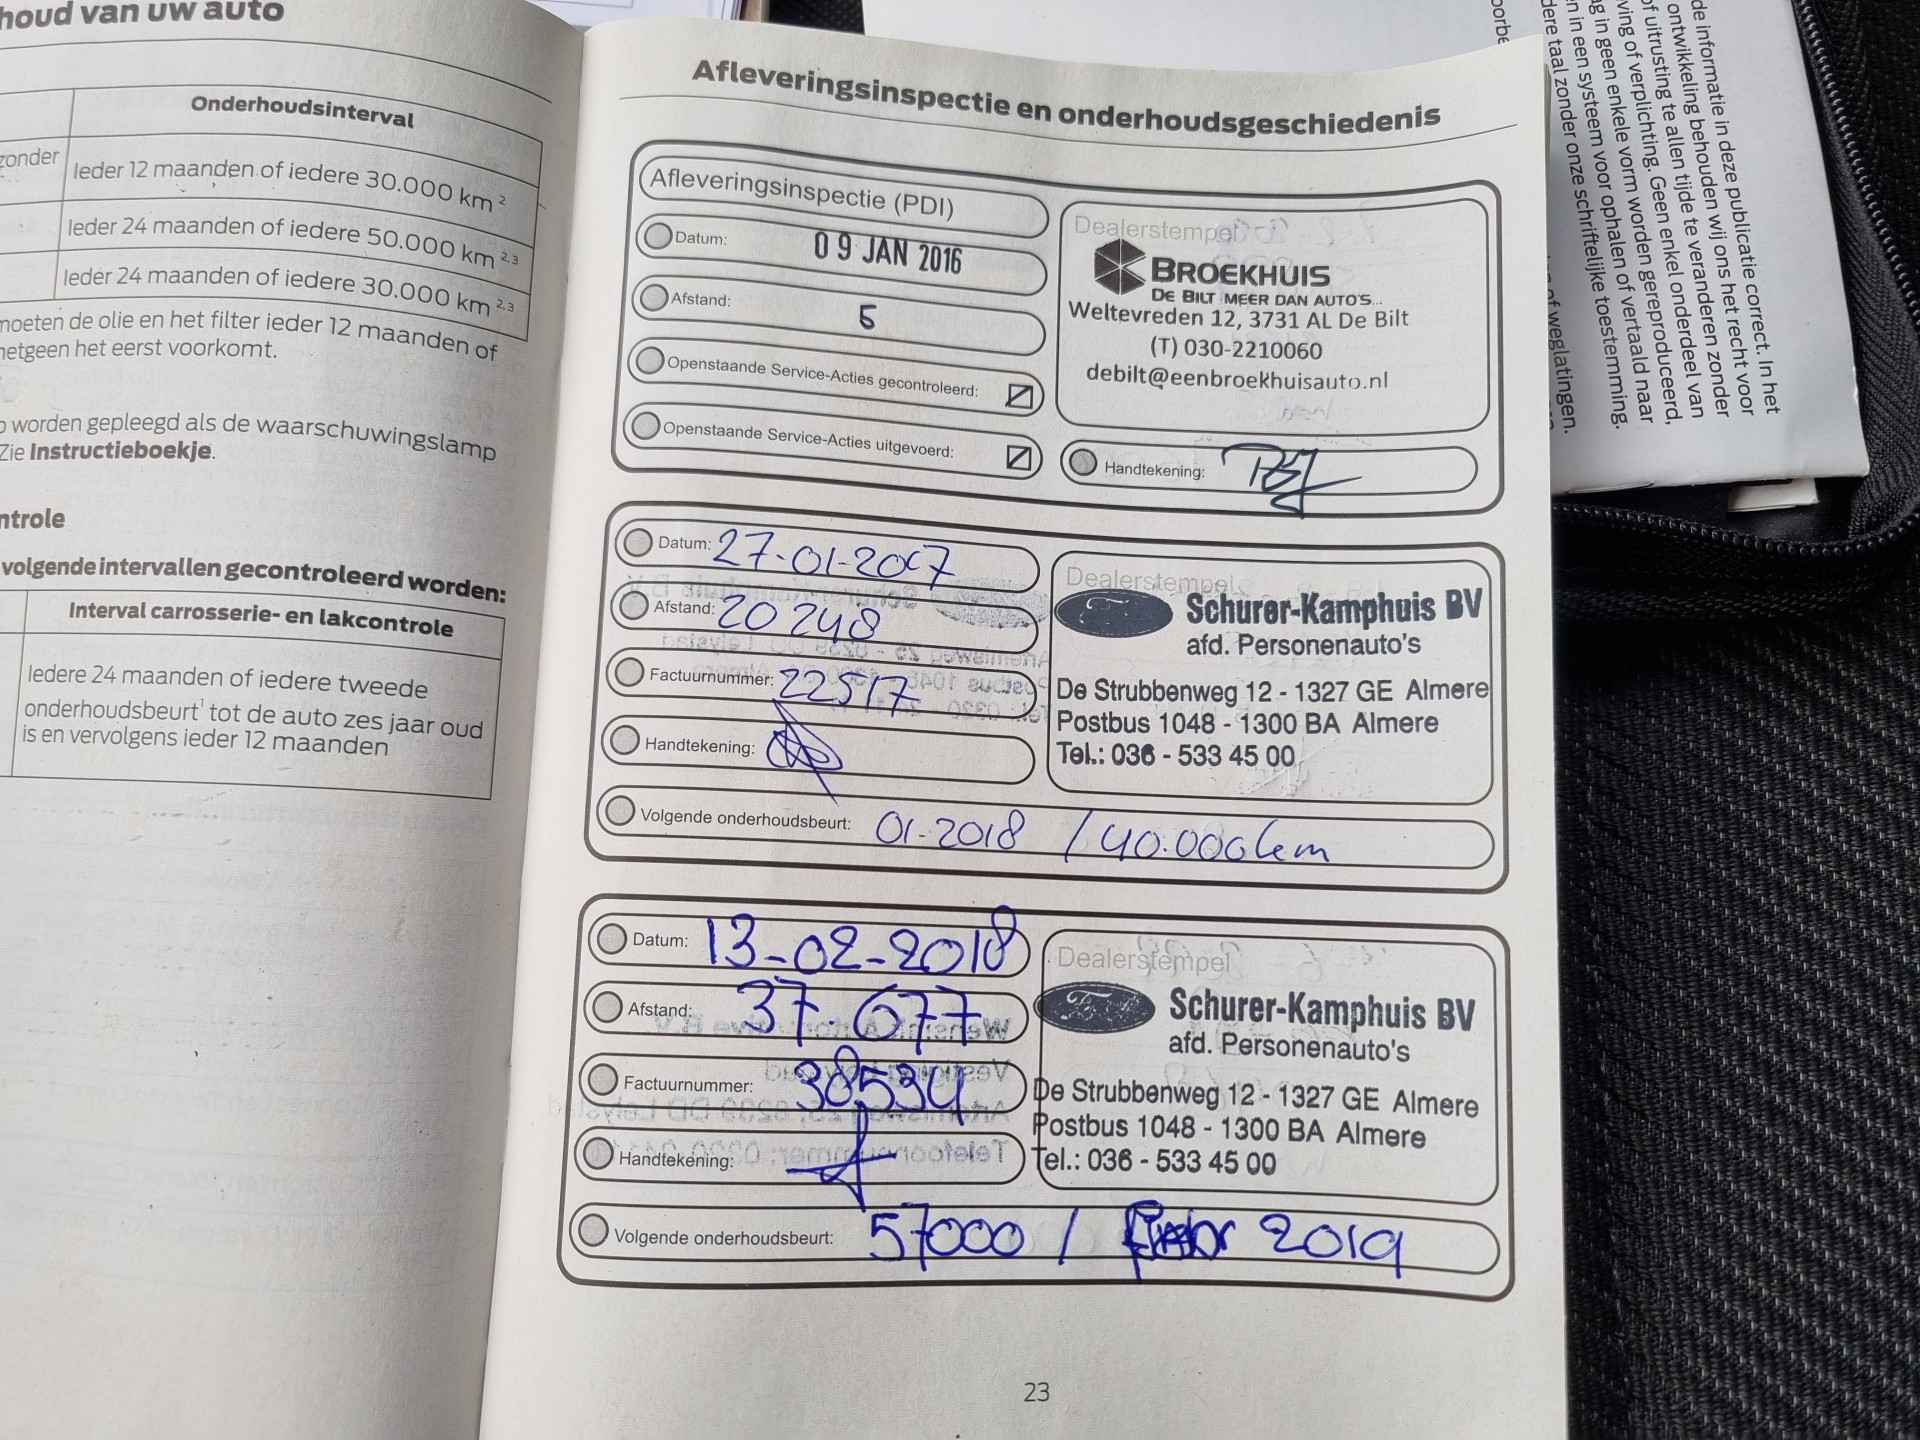 houd van uw auto
Onderhoudsinterval
zonder
Ieder 12 maanden of iedere 30.000 km 2
Ieder 24 maanden of iedere 50.000 km 2,3
Ieder 24 maanden of iedere 30.000 km 2,3
moeten de olie en het filter ieder 12 maanden of
hetgeen het eerst voorkomt.
worden gepleegd als de waarschuwingslamp
Zie Instructieboekje.
ntrole
volgende intervallen gecontroleerd worden:
Interval carrosserie- en lakcontrole
Iedere 24 maanden of iedere tweede
onderhoudsbeurt1 tot de auto zes jaar oud
is en vervolgens ieder 12 maanden
Afleveringsinspectie en onderhoudsgeschiedenis
Afleveringsinspectie (PDI)
Datum: 09 JAN 2016
Afstand: 5
Openstaande Service-Acties gecontroleerd:
Openstaande Service-Acties uitgevoerd:
Dealerstempel
BROEKHUIS
DE BILT MEER DAN AUTO'S...
Weltevreden 12, 3731 AL De Bilt
(T) 030-2210060
debilt@eenbroekhuisauto.nl
Handtekening:
Datum: 27-01-2017
Afstand: 20248
Factuurnummer: 22517
Handtekening:
Dealerstempel
Ford
Schurer-Kamphuis BV
afd. Personenauto's
De Strubbenweg 12 - 1327 GE Almere
Postbus 1048 - 1300 BA Almere
Tel.: 036 - 533 45 00
Volgende onderhoudsbeurt: 01-2018 / 40.000km
Datum: 13-02-2018
Afstand: 37.677
Factuurnummer: 38534
Handtekening:
Dealerstempel
Ford
Schurer-Kamphuis BV
afd. Personenauto's
De Strubbenweg 12 - 1327 GE Almere
Postbus 1048 - 1300 BA Almere
Tel.: 036 - 533 45 00
Volgende onderhoudsbeurt: 57000 / 2019
23
de informatie in deze publicatie correct. In het
ontwikkeling behouden wij ons het recht voor
of uitrusting te allen tijde te veranderen zonder
ving of verplichting. Geen enkel onderdeel van
ag in geen enkele vorm worden gereproduceerd,
en in een systeem voor ophalen of vertaald naar
dere taal zonder onze schriftelijke toestemming.
of weglatingen.